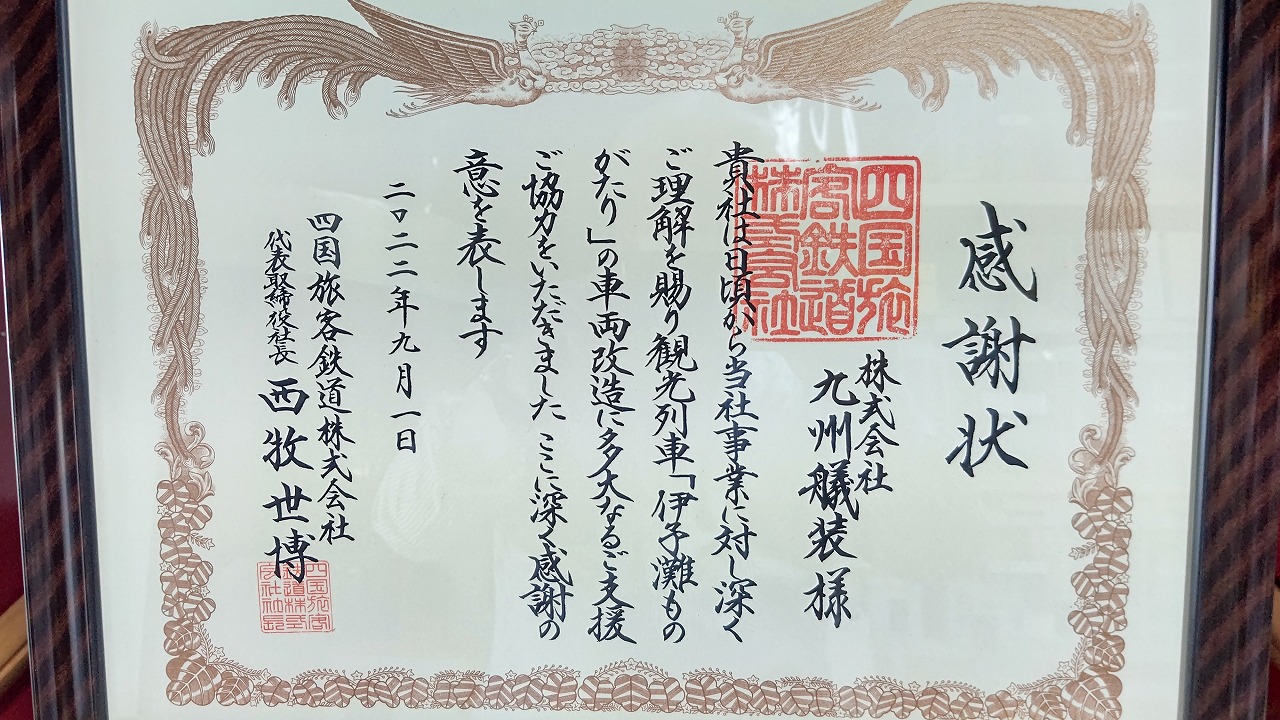 感謝状
株式会社
九州艤装様
貴社は日頃から当社事業に対し深く
ご理解を賜り観光列車「伊予灘もの
がたり」の車両改造に多大なるご支援
ご協力をいただきました ここに深く感謝の
意を表します
二〇二二年九月一日
四国旅客鉄道株式会社
代表取締役社長 西牧世博
四国旅
客鉄道
株式会社
四国旅客
鉄道株式
会社社長